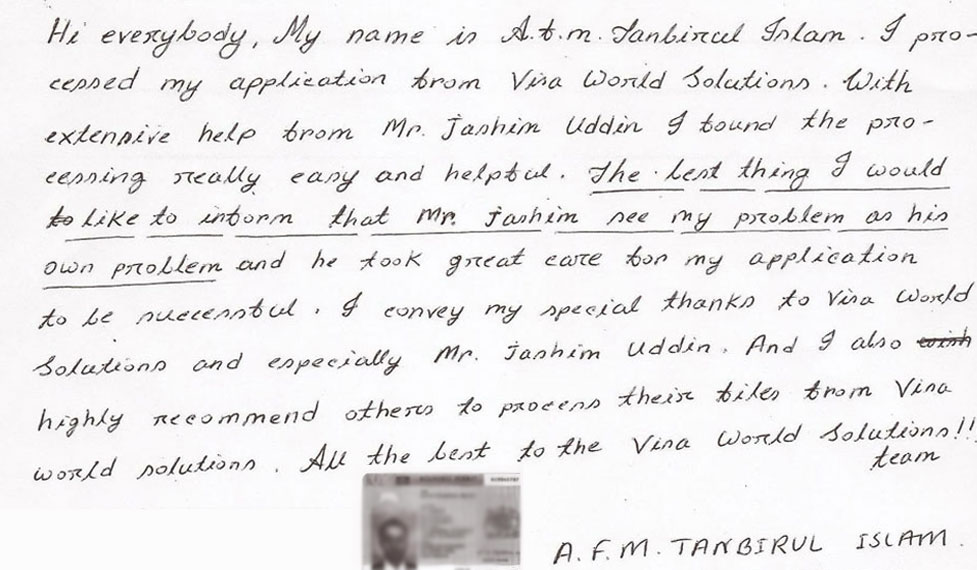 Hi everybody, My name is A.f.m. Tanbirul Islam. I pro-
cessed my application from Visa World Solutions. With
extensive help from Mr. Jashim Uddin I found the pro-
cessing really easy and helpful. The best thing I would
to like to inform that Mr. Jashim see my problem as his
own problem and he took great care for my application
to be successful. I convey my special thanks to Visa World
Solutions and especially Mr. Jashim Uddin. And I also wish
highly recommend others to process their files from Visa
world solutions. All the best to the Visa World Solutions!!
team
A.F.M. TANBIRUL ISLAM.